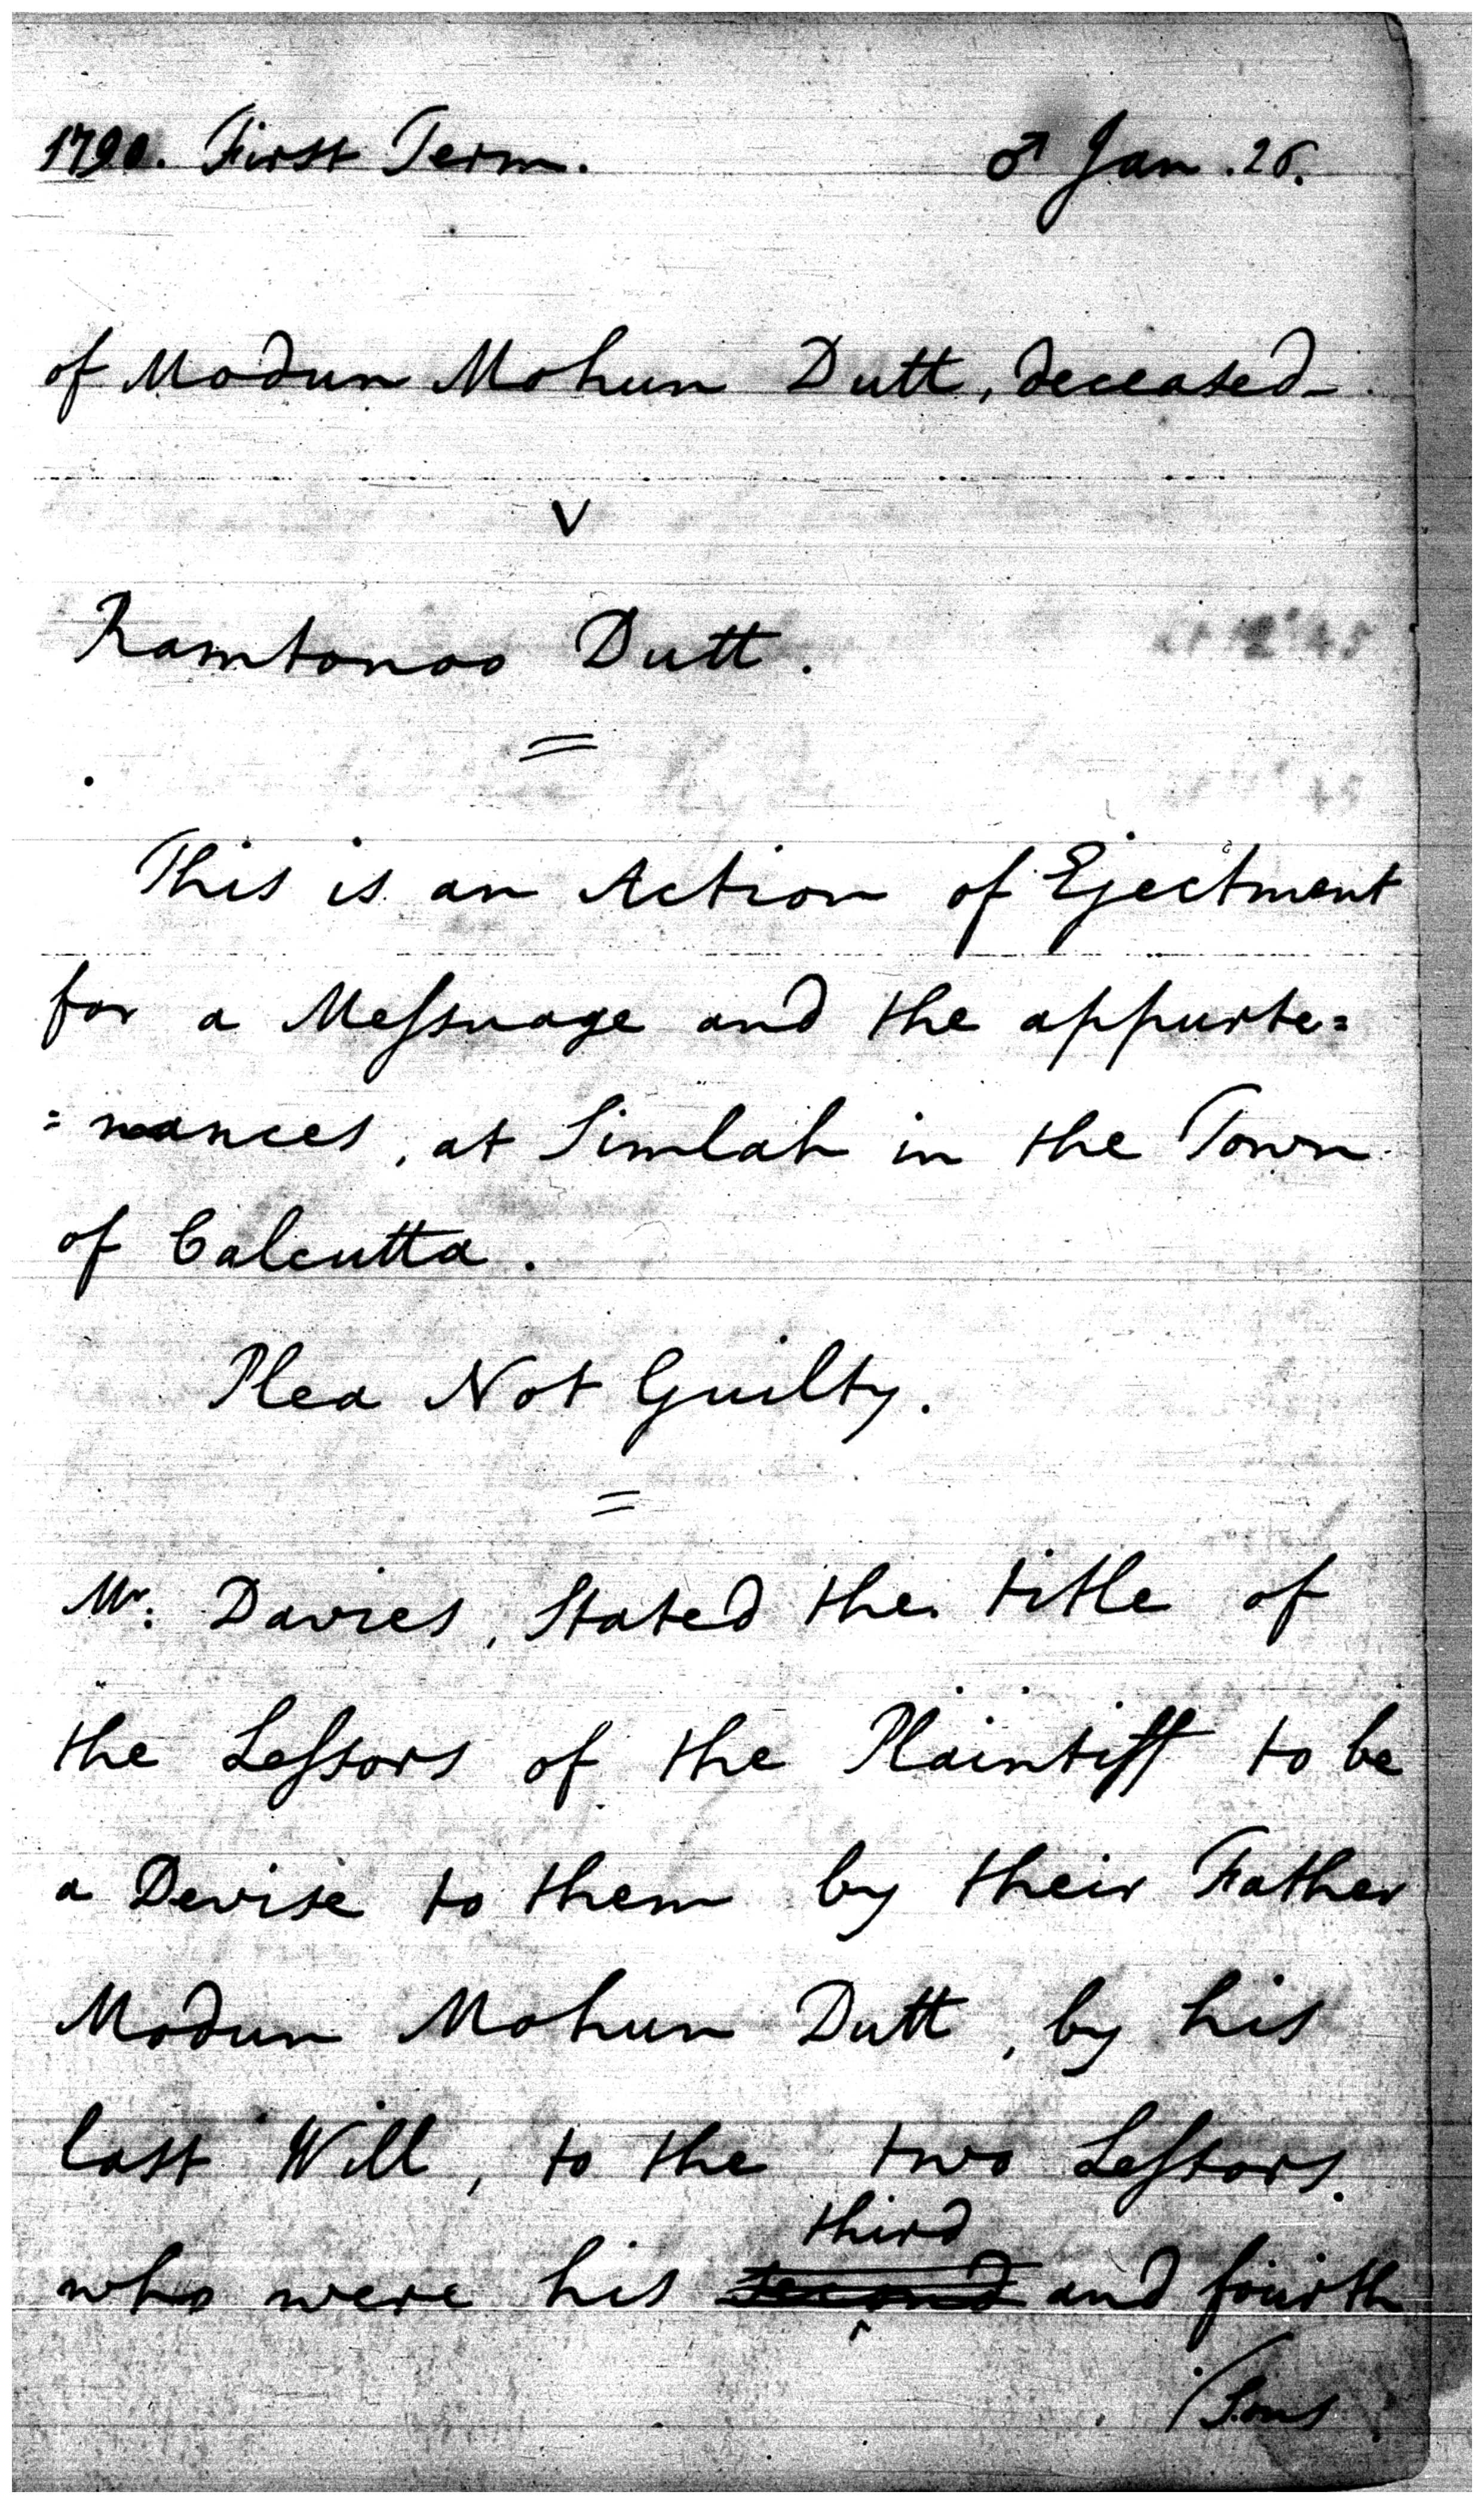 1790. First Term. ♂ Jan. 26.
of Modun Mohun Dutt, deceased
V
Ramtonoo Dutt.
=
This is an Action of Ejectment
for a Meſsuage and the appurte=
=nances, at Simlah in the Town
of Calcutta.
Plea Not Guilty.
=
Mr. Davies, Stated the title of
the Leſsors of the Plaintiff to be
a Devise to them by their Father
Modun Mohun Dutt, by his
last Will, to the two Leſsors.
third
who were his second and fourth
/Sons